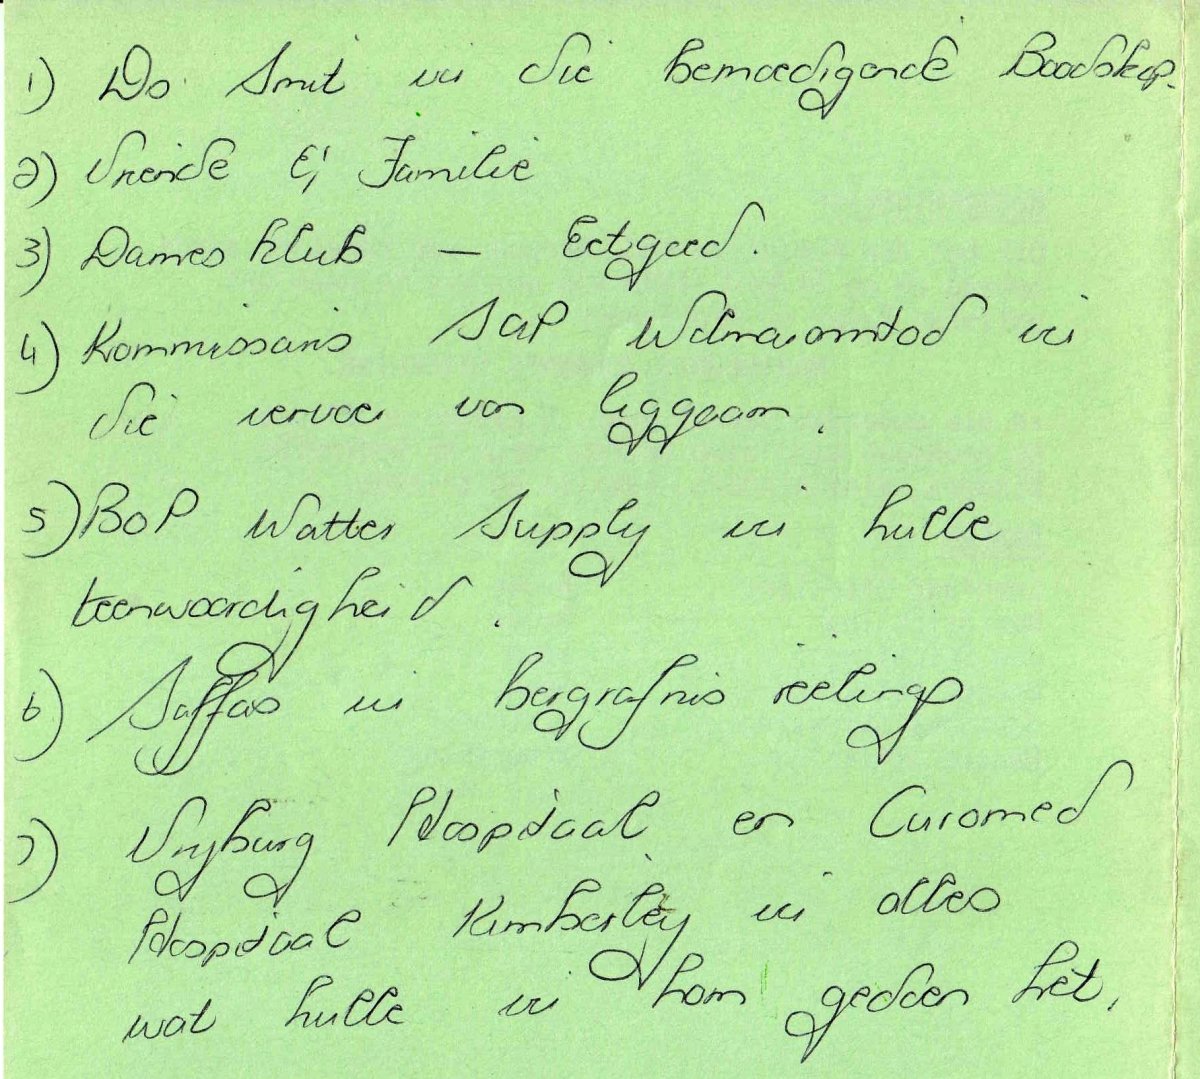 1) Ds. Smit vir die bemoedigende Boodskap.
2) Vriende & Familie
3) Dames klub — Eetgoed.
4) Kommissaris SAP vir
die vervoer van liggaam.
5) BOP Watter Supply vir hulle
teenwoordigheid.
6) Saffas vir bergrafnis reëlings
7) Vryburg Hospitaal en Curomed
Hospitaal Kimberley vir alles
wat hulle vir hom gedoen het.